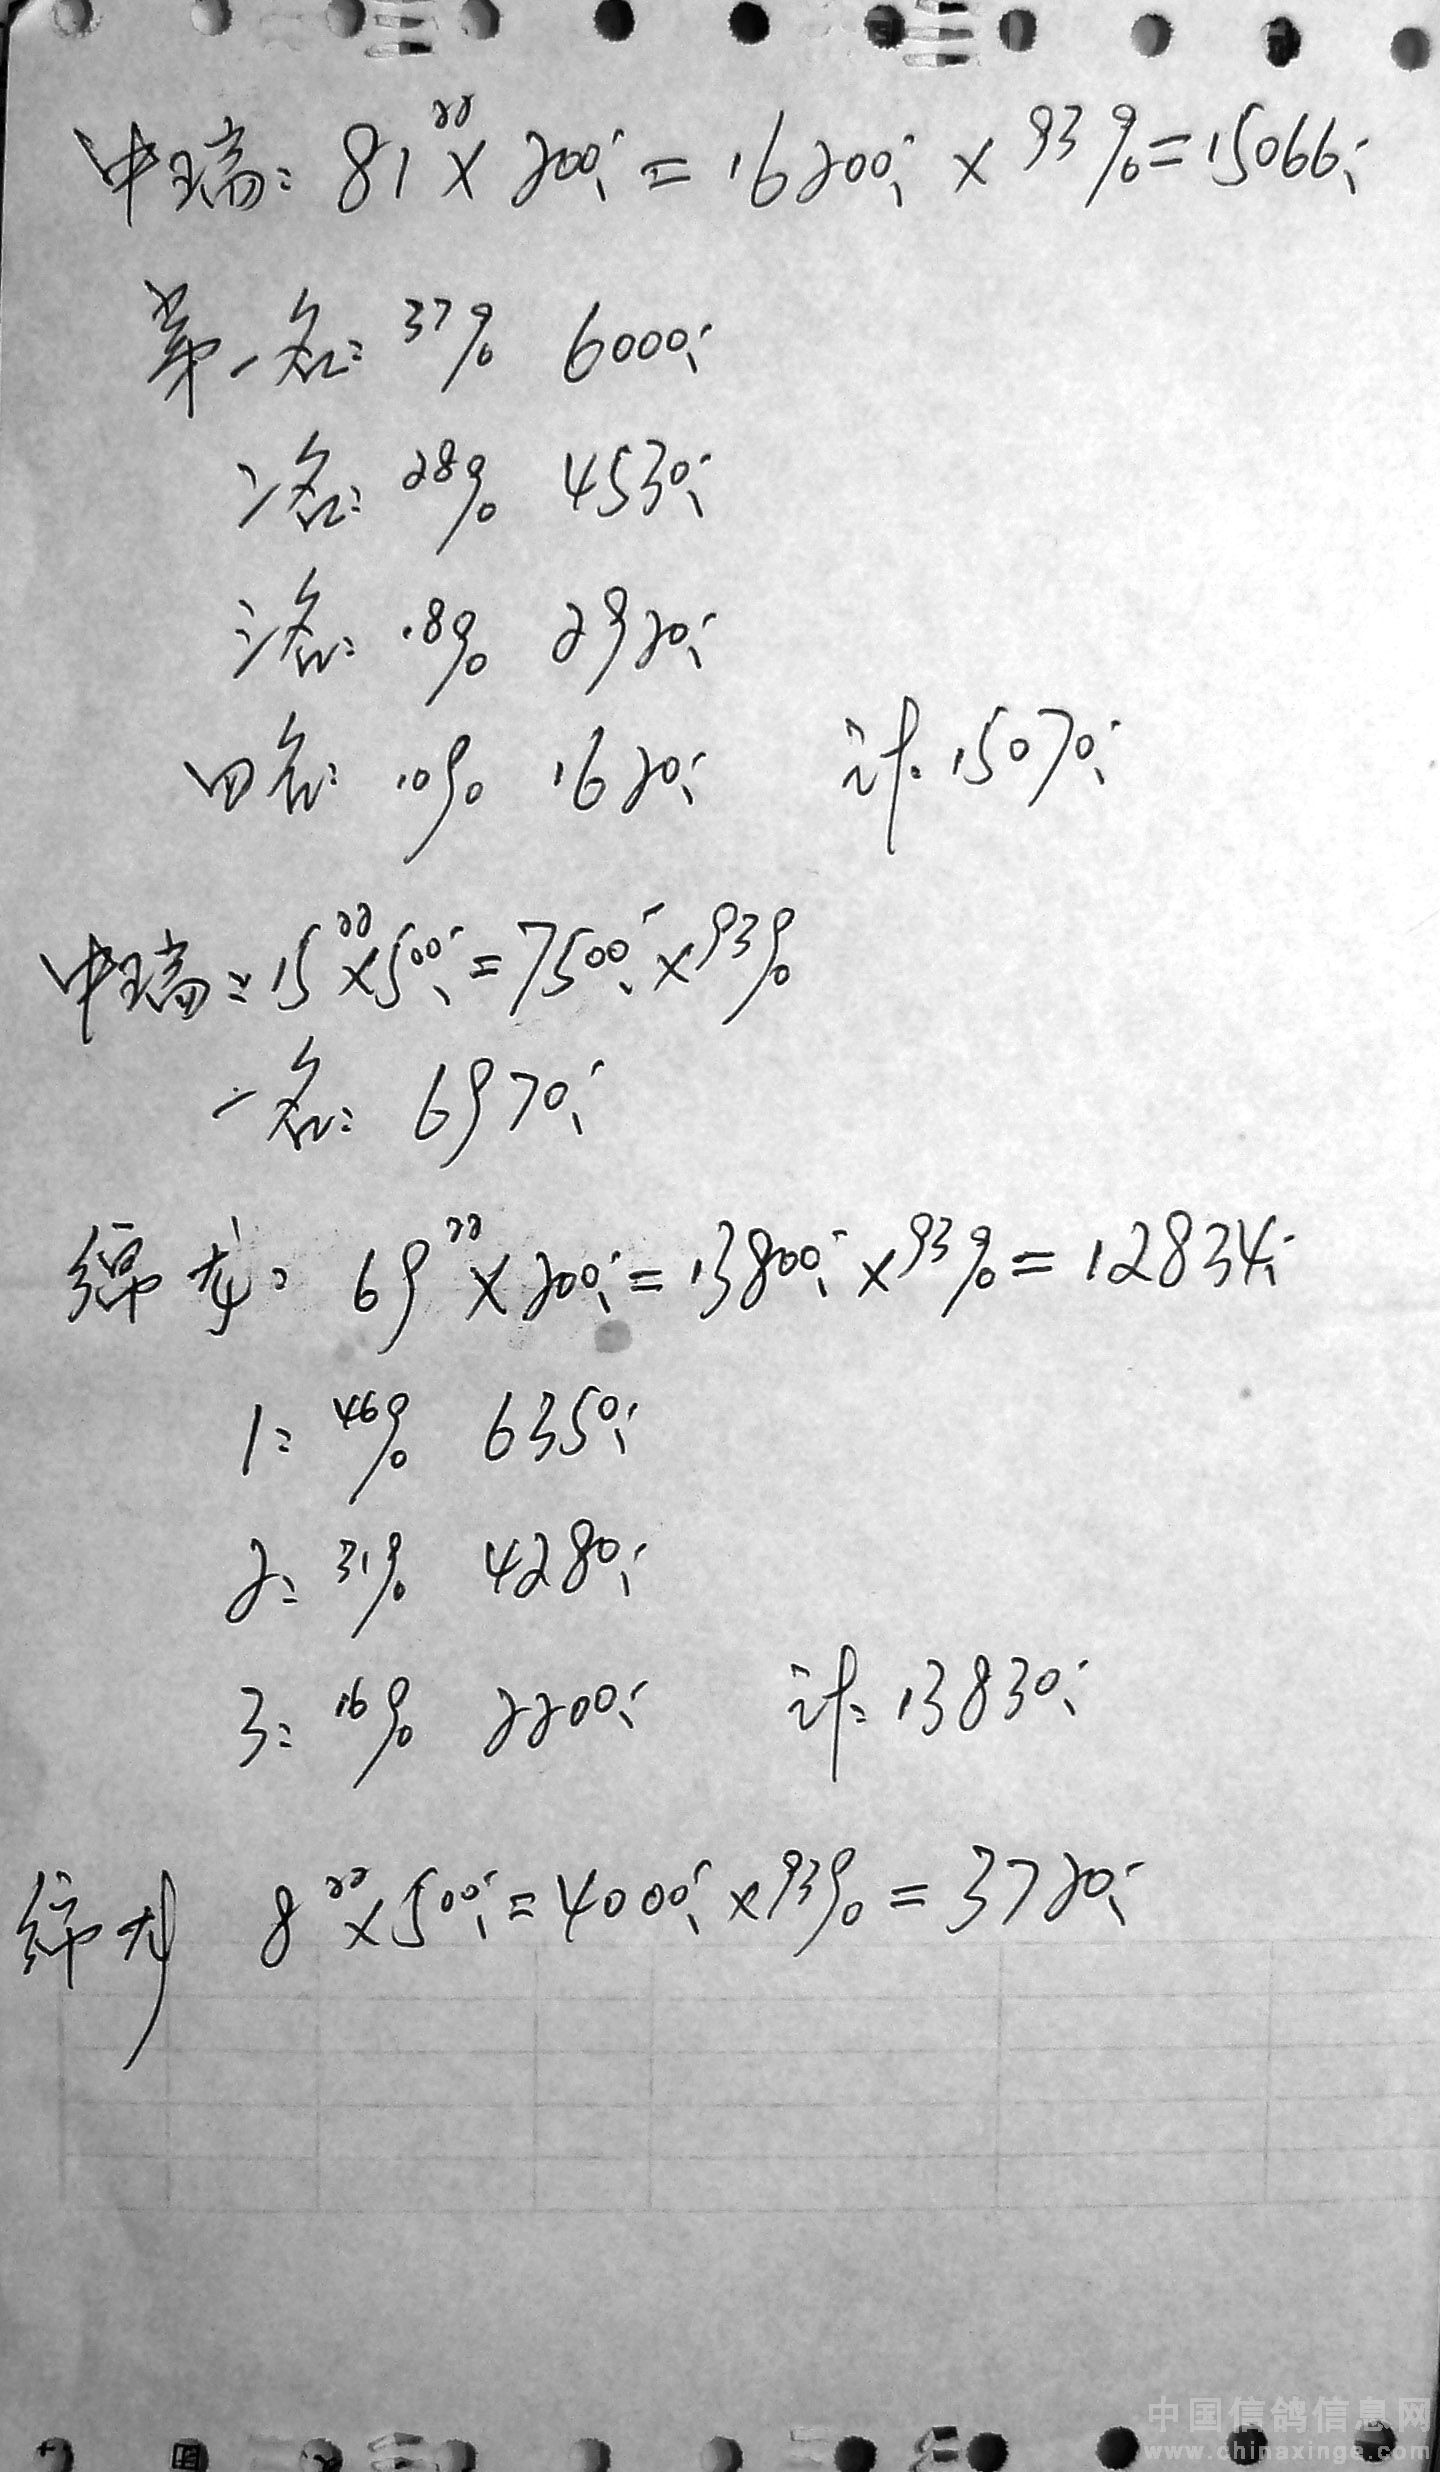 中瑞: 81羽 × 200元 = 16200元 × 93% = 15066元
第一名: 37% 6000元
二名: 28% 4530元
三名: 18% 2920元
四名: 10% 1620元 计: 15070元
中瑞: 15羽 × 500元 = 7500元 × 93%
一名: 6970元
绵龙: 69羽 × 200元 = 13800元 × 93% = 12834元
1: 46% 6350元
2: 31% 4280元
3: 16% 2200元 计: 13830元
绵龙 8羽 × 500元 = 4000元 × 93% = 3720元
中国信鸽信息网
www.chinaxinge.com